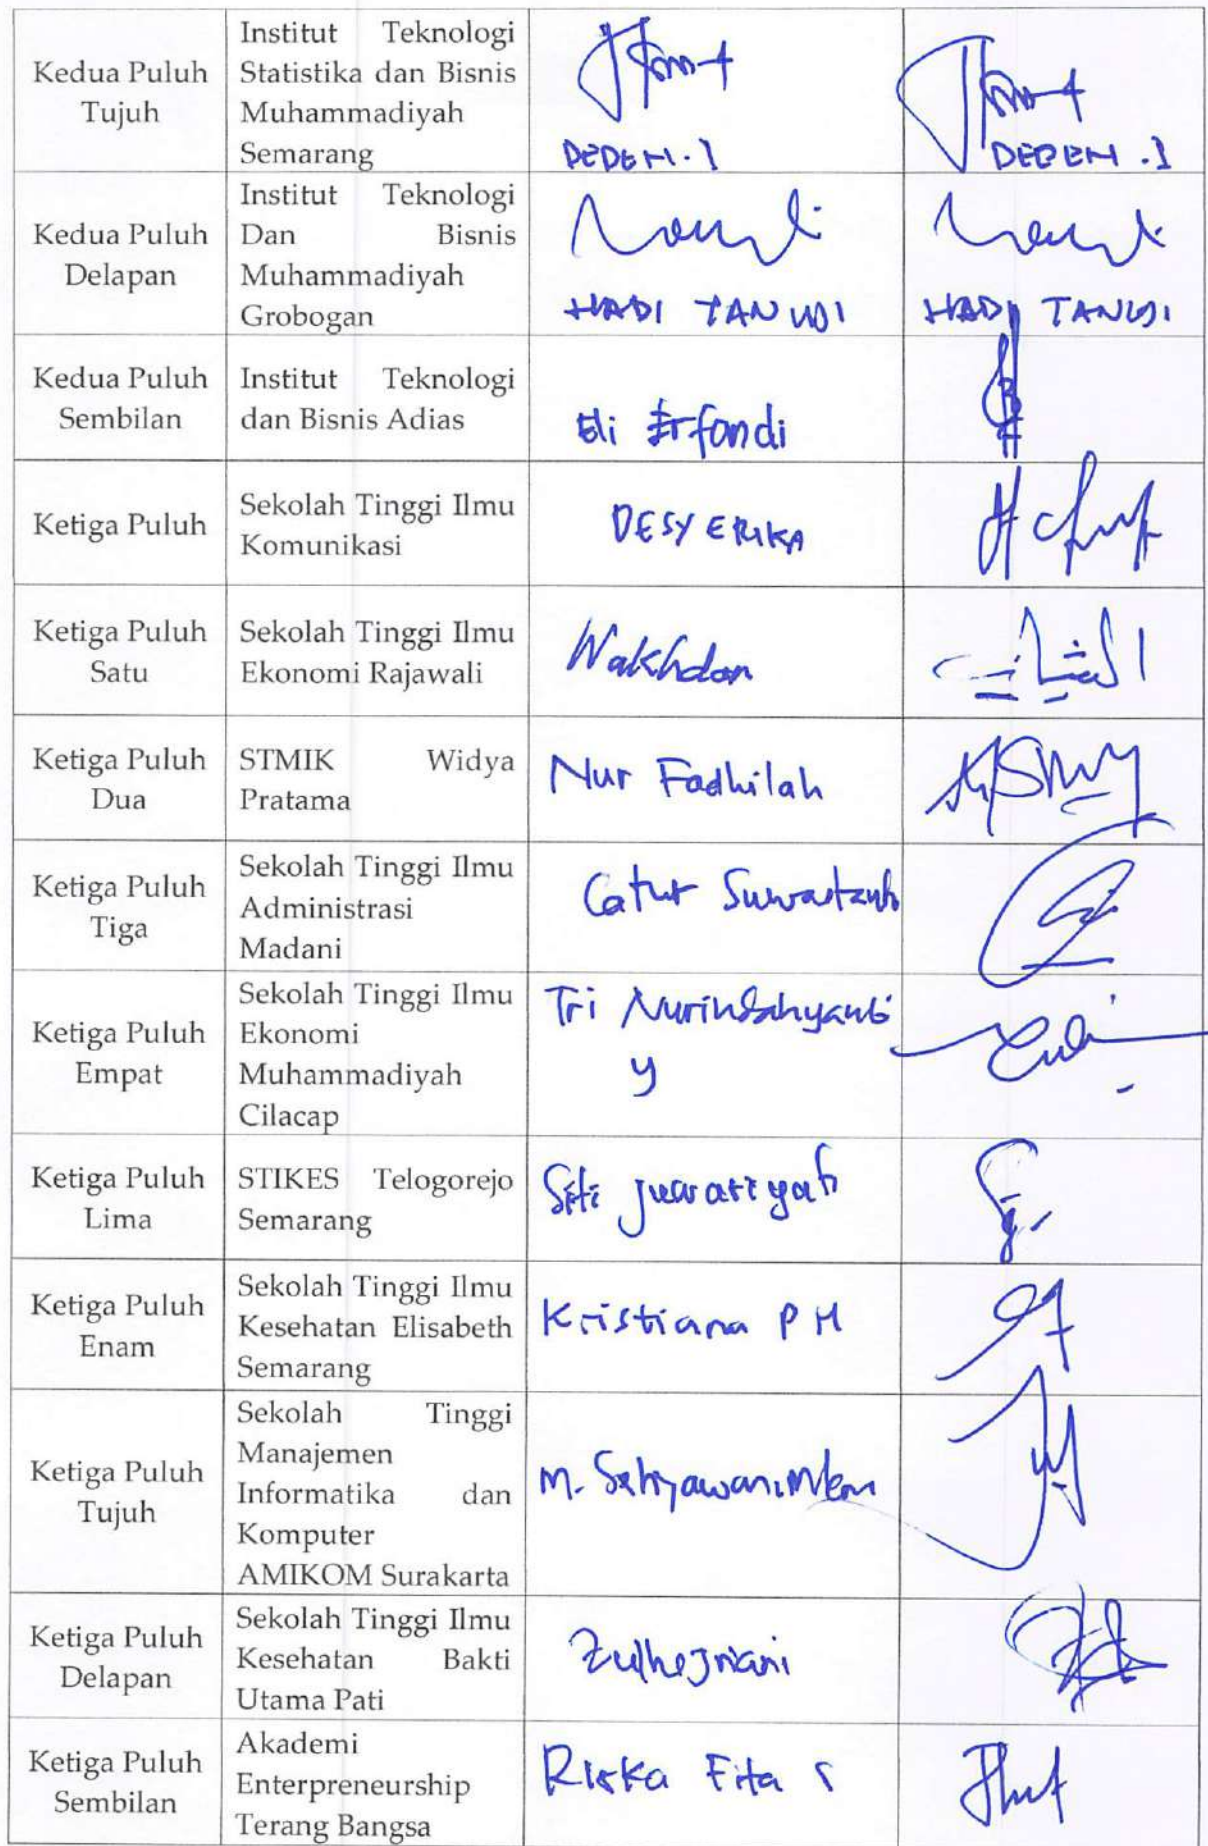 Kedua Puluh
Tujuh
Institut Teknologi
Statistika dan Bisnis
Muhammadiyah
Semarang
DEDEN . I
DEDEN . I
Kedua Puluh
Delapan
Institut Teknologi
Dan Bisnis
Muhammadiyah
Grobogan
HADI TANUJI
HADI TANUJI
Kedua Puluh
Sembilan
Institut Teknologi
dan Bisnis Adias
Eli Erfandi
Ketiga Puluh
Sekolah Tinggi Ilmu
Komunikasi
DESY ERIKA
Ketiga Puluh
Satu
Sekolah Tinggi Ilmu
Ekonomi Rajawali
Wakhdan
Ketiga Puluh
Dua
STMIK Widya
Pratama
Nur Fadhilah
Ketiga Puluh
Tiga
Sekolah Tinggi Ilmu
Administrasi
Madani
Catur
Ketiga Puluh
Empat
Sekolah Tinggi Ilmu
Ekonomi
Muhammadiyah
Cilacap
Tri
y
Ketiga Puluh
Lima
STIKES Telogorejo
Semarang
Siti Juwariyah
Ketiga Puluh
Enam
Sekolah Tinggi Ilmu
Kesehatan Elisabeth
Semarang
Kristiana P H
Ketiga Puluh
Tujuh
Sekolah Tinggi
Manajemen
Informatika dan
Komputer
AMIKOM Surakarta
M. Setiyawan
Ketiga Puluh
Delapan
Sekolah Tinggi Ilmu
Kesehatan Bakti
Utama Pati
Ketiga Puluh
Sembilan
Akademi
Enterpreneurship
Terang Bangsa
Riska Fita S